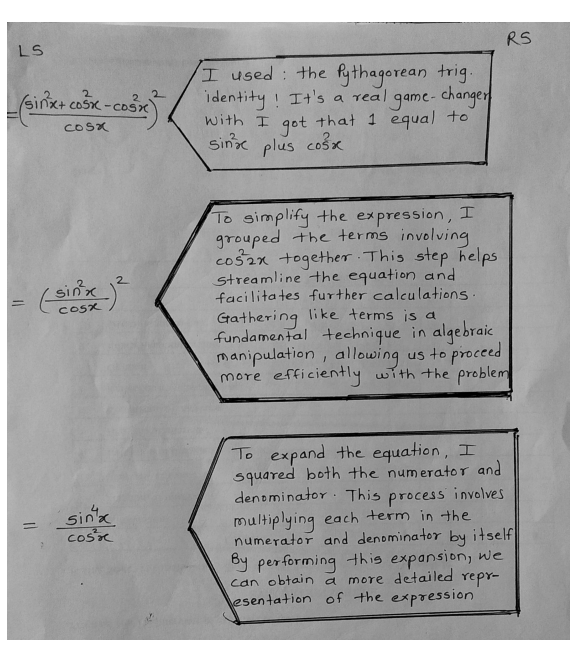 LS
RS
= (sin²x + cos²x - cos²x / cosx)²
I used : the Pythagorean trig.
identity ! It's a real game-changer
With I got that 1 equal to
sin²x plus cos²x
= (sin²x / cosx)²
To simplify the expression, I
grouped the terms involving
cos²2x together. This step helps
streamline the equation and
facilitates further calculations.
Gathering like terms is a
fundamental technique in algebraic
manipulation, allowing us to proceed
more efficiently with the problem
= sin⁴x / cos²x
To expand the equation, I
squared both the numerator and
denominator. This process involves
multiplying each term in the
numerator and denominator by itself
By performing this expansion, we
can obtain a more detailed repr-
esentation of the expression